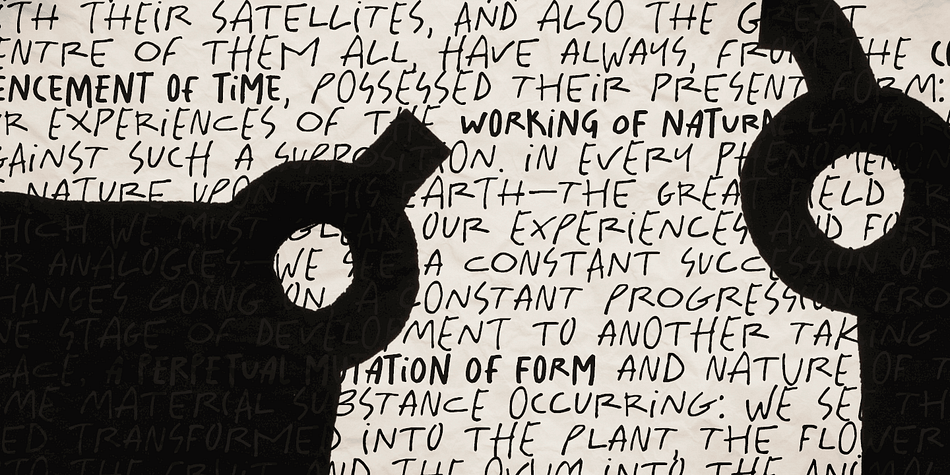 ITH THEIR SATELLITES, AND ALSO THE GREAT
ENTRE OF THEM ALL, HAVE ALWAYS, FROM THE C
ENCEMENT OF TIME, POSSESSED THEIR PRESENT FORM:
R EXPERIENCES OF THE WORKING OF NATURAL LAWS
GAINST SUCH A SUPPOSITION. IN EVERY PHENOMEN
NATURE UPON EARTH—THE GREAT FIELD
HICH WE MUST GLEAN OUR EXPERIENCES AND FOR
R ANALOGIES—WE SEE A CONSTANT SUCCESSION OF
HANGES GOING ON, A CONSTANT PROGRESSION FRO
NE STAGE OF DEVELOPMENT TO ANOTHER TAKING
LACE, A PERPETUAL MUTATION OF FORM AND NATURE OF T
ME MATERIAL SUBSTANCE OCCURRING: WE SEE TH
ED TRANSFORMED INTO THE PLANT, THE FLOWER
TO THE FRUIT AND THE OVUM INTO THE AN